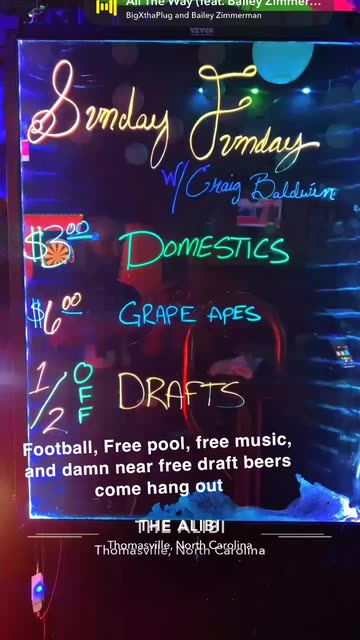 All The Way (feat. Bailey Zimmer...
BigXthaPlug and Bailey Zimmerman
VEVOR
Sunday Funday
W/ Craig Baldwin
$3.00 DOMESTICS
$6.00 GRAPE APES
1/2 OFF DRAFTS
Football, Free pool, free music,
and damn near free draft beers
come hang out
THE ALIBI
Thomasville, North Carolina
Thomasville, North Carolina